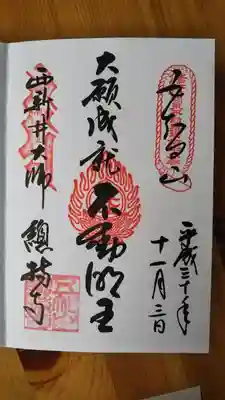 五智山
平成三十年
十一月三日
大願成就 不動明王
西新井大師 總持寺